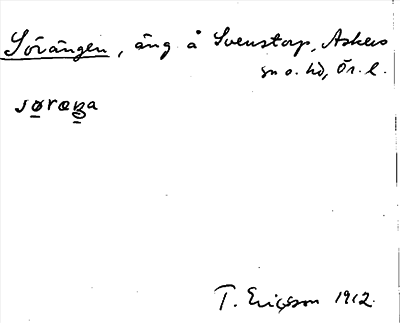 Sörängen, äng å Svenstorp, Askers
sn o. hd, Ör. l.
søræŋa
T. Ericsson 1912.